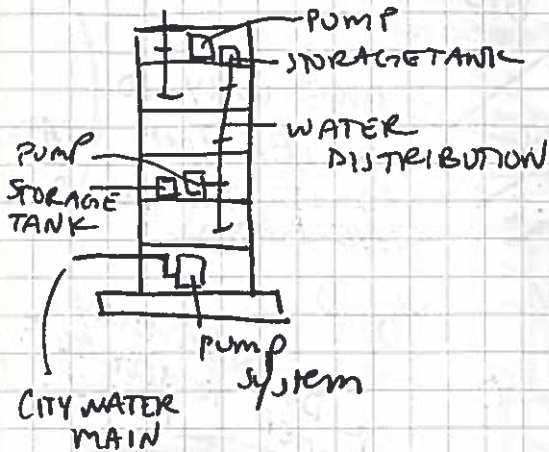 PUMP
STORAGE TANK
WATER
DISTRIBUTION
PUMP
STORAGE
TANK
PUMP
System
CITY WATER
MAIN